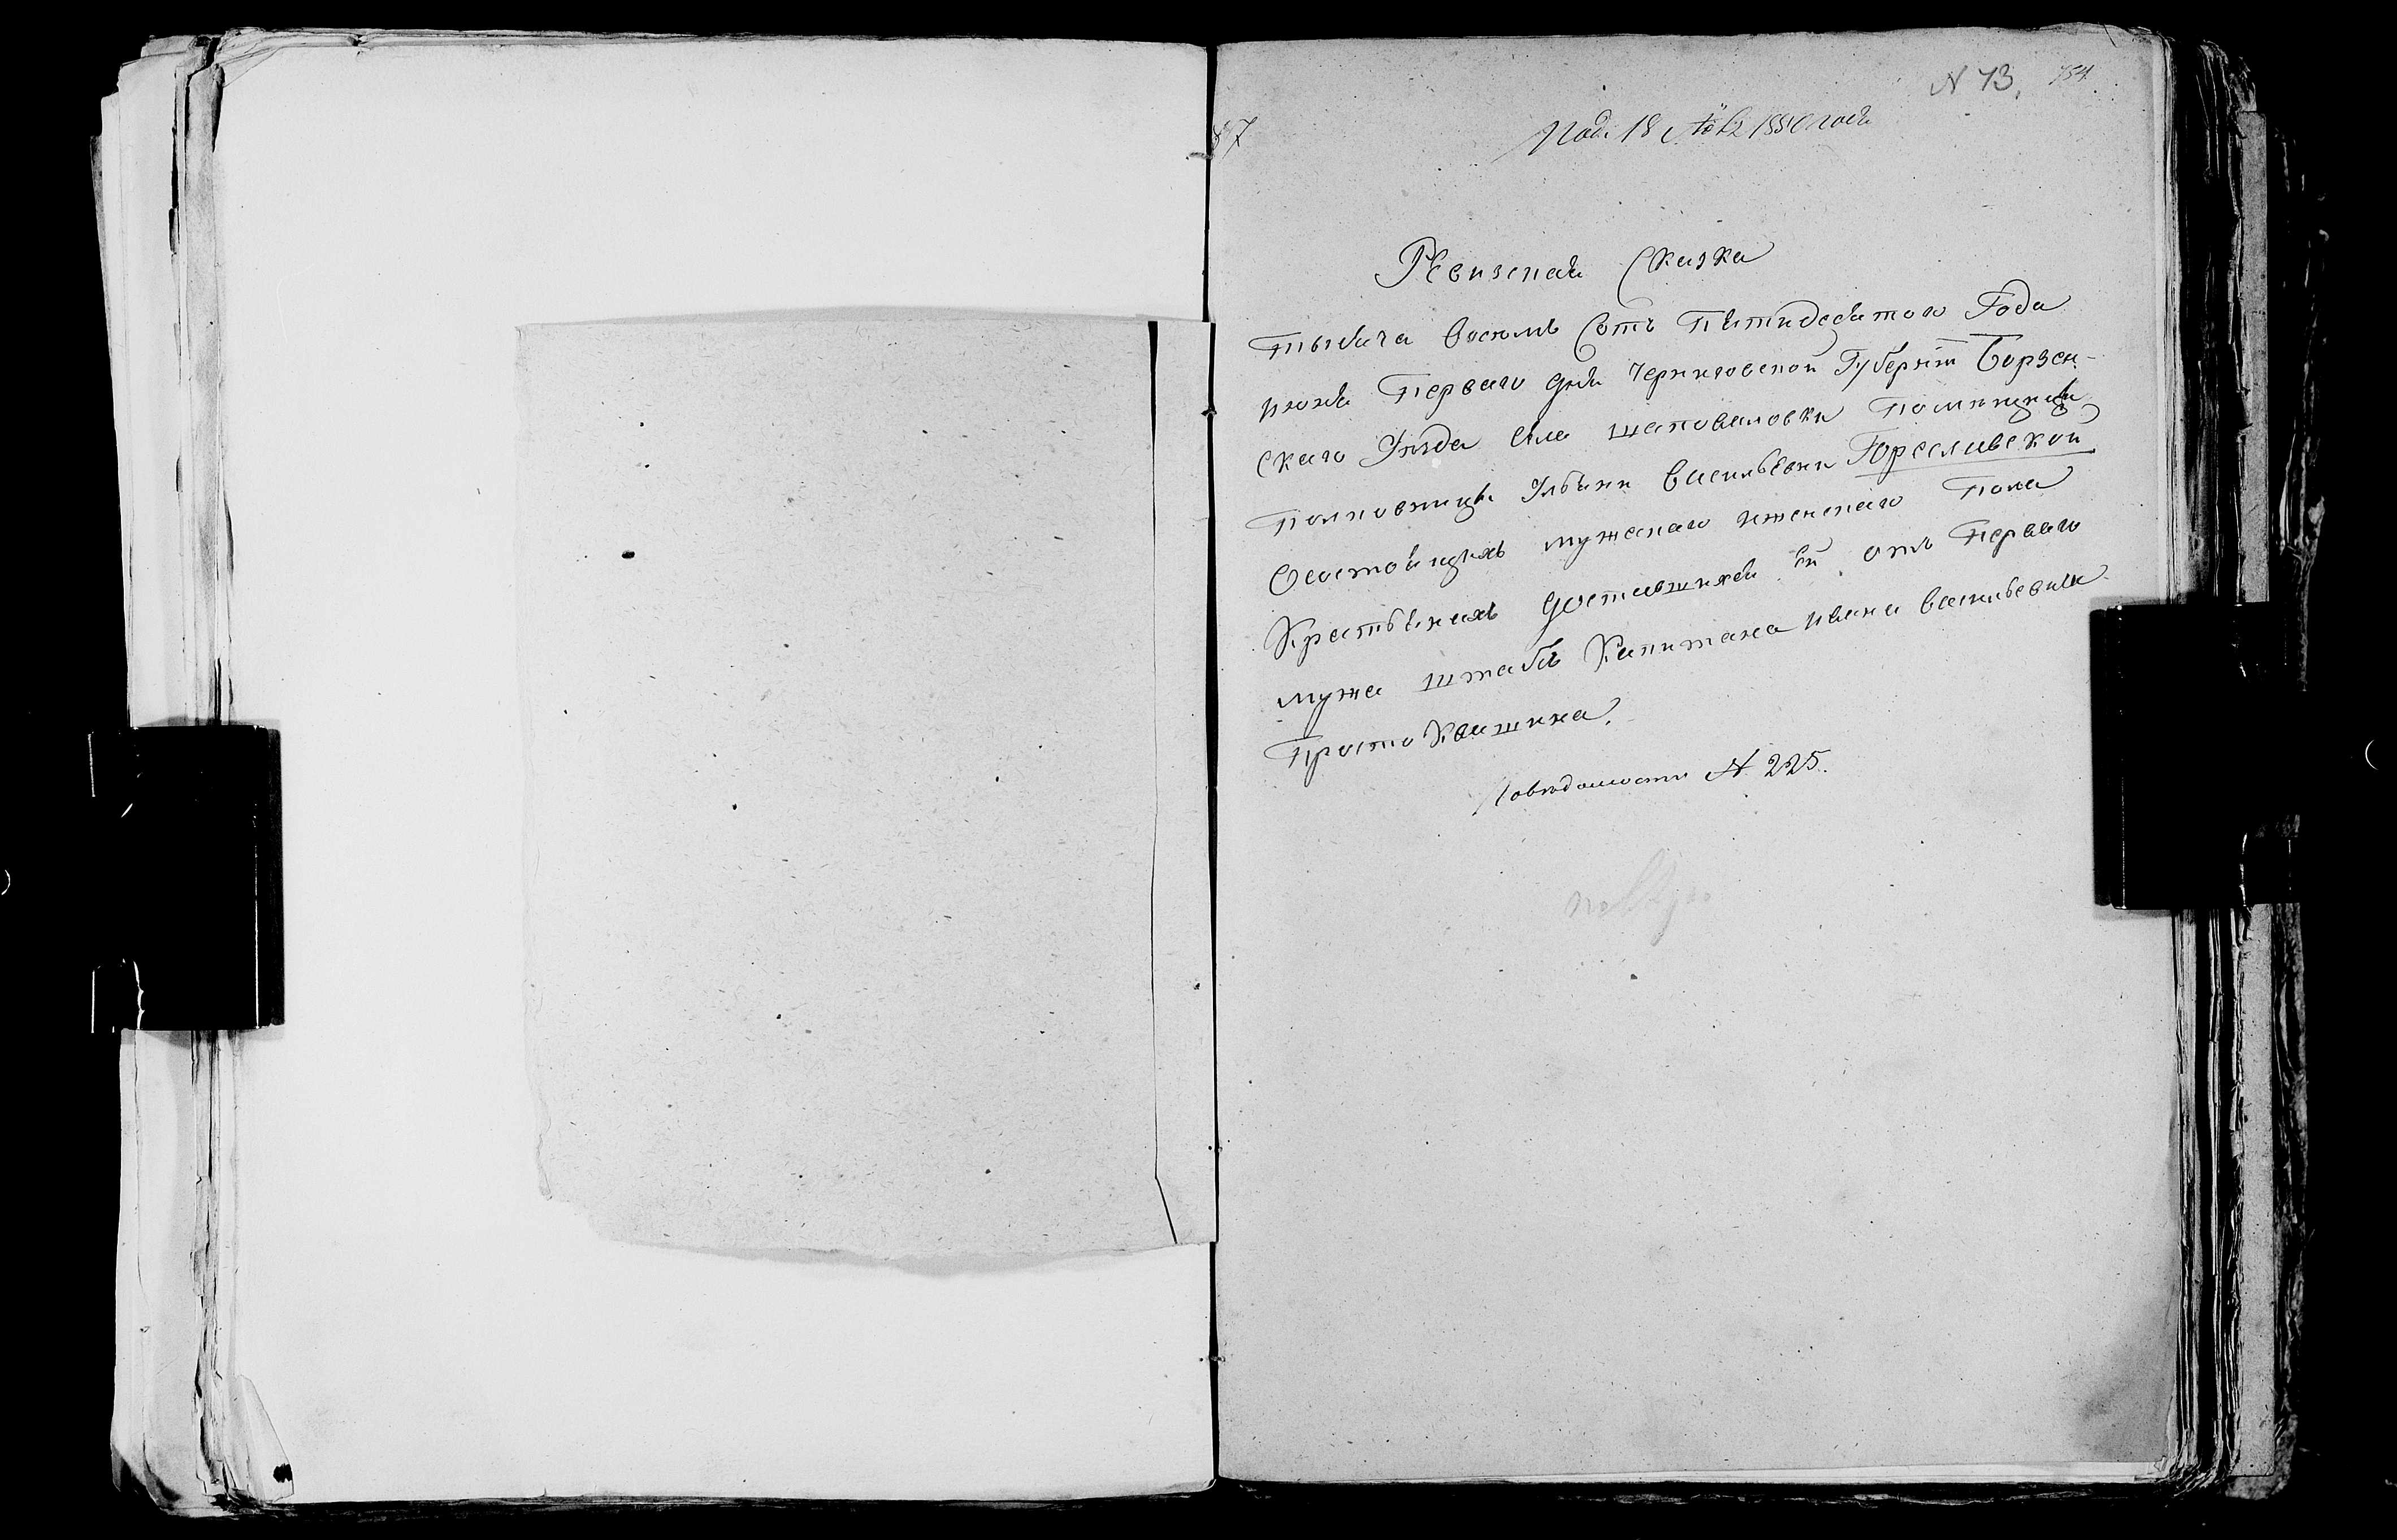 N 73. 754.
87
Под. 18 Ноября 1850 года
Ревизская Сказка
тысяча восемь Сотъ Пятидесятого Года
июня Перваго дня Черниговской Губерніи Борзен-
скаго Уезда села шаповаловки Помещицы
Полковницы Ульяни Васильевни Гореславской
Осостоящихъ мужскаго иженскаго Пола
Крестьянахъ доставшихся ей отъ Перваго
мужа штабъ Капитана ивана Васильевича
Просто Квашина.
Поведомости N 225.